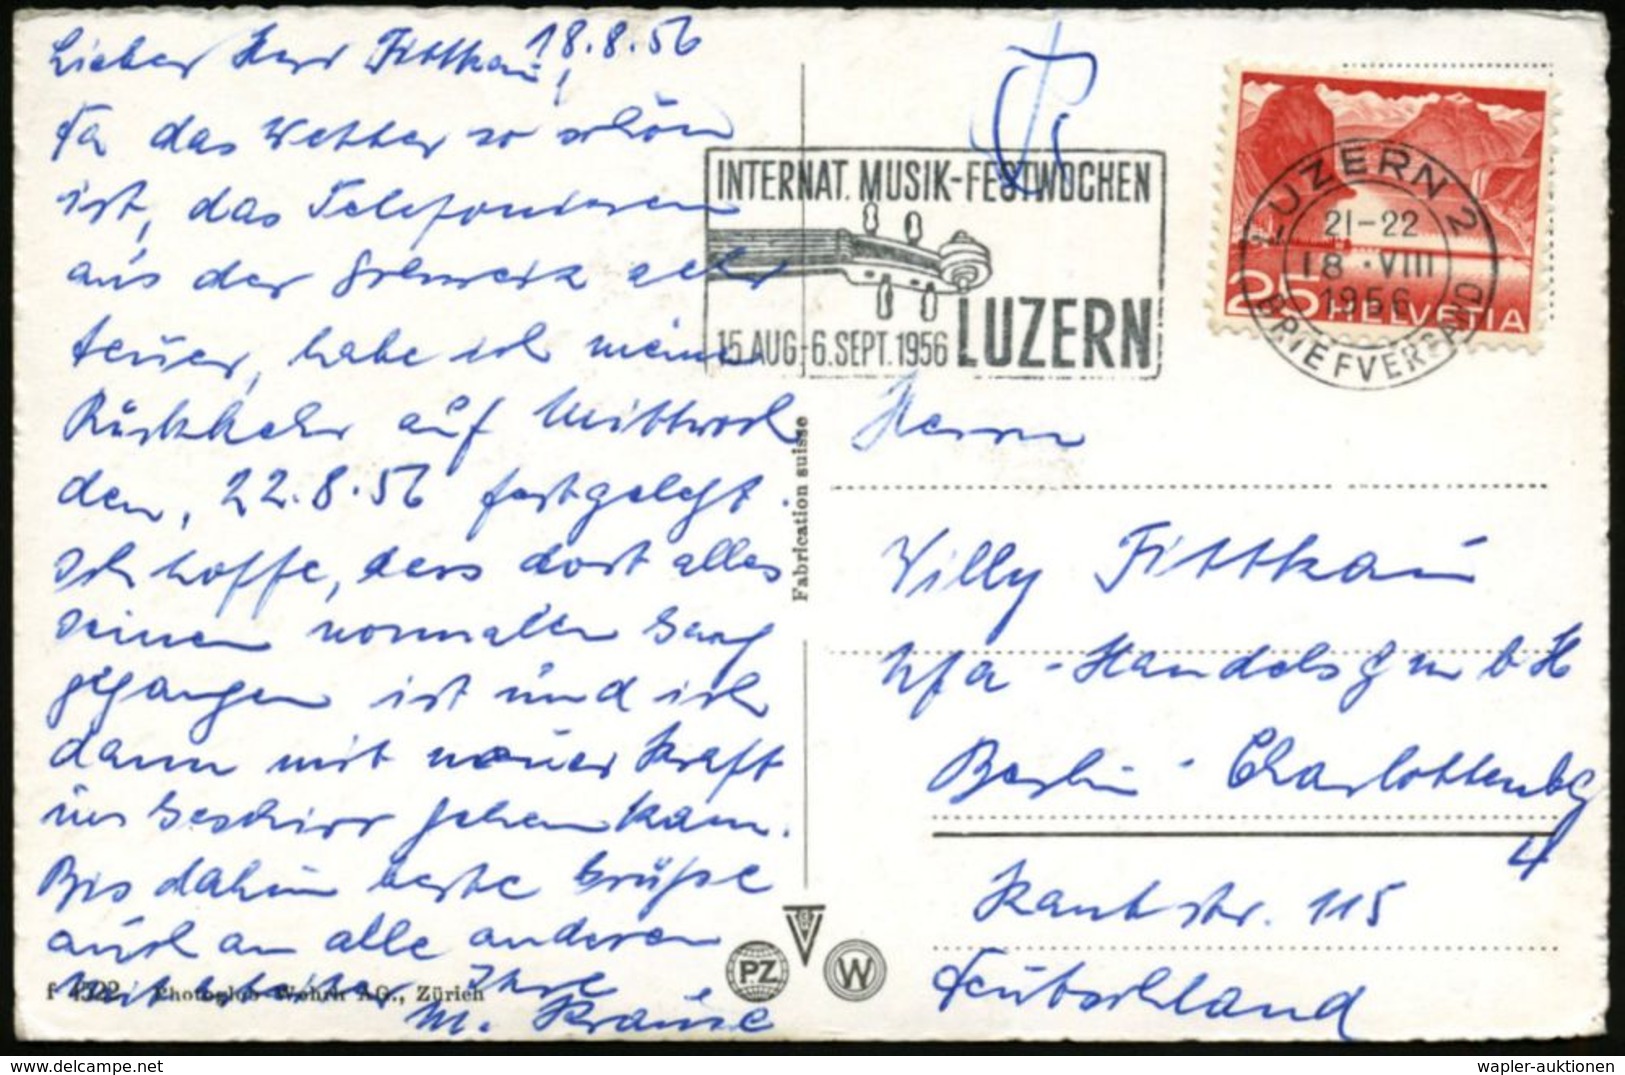 18.8.56
Lieber Herr Fittkau,
Da das Wetter so schön
ist, das Telefonieren
aus der Schweiz sehr
teuer, habe ich meine
Rückkehr auf Mittwoch
den, 22.8.56 festgelegt.
Ich hoffe, dass dort alles
seinen normalen Gang
gegangen ist und ich
dann mit neuer Kraft
ins Geschirr gehen kann.
Bis dahin beste Grüße
auch an alle anderen
Mitarbeiter Ihre
M. Krause
f 4522 Photoglob-Wehrli AG., Zürich
Fabrication suisse
PZ
W
INTERNAT. MUSIK-FESTWOCHEN
15.AUG.-6.SEPT.1956 LUZERN
LUZERN 2
21-22
18.VIII
1956
BRIEFVERSAND
25 HELVETIA
Herrn
Willy Fittkau
Ufa-Handels GmbH
Berlin-Charlottenbg
4
Kantstr. 115
Deutschland
wapler-auktionen